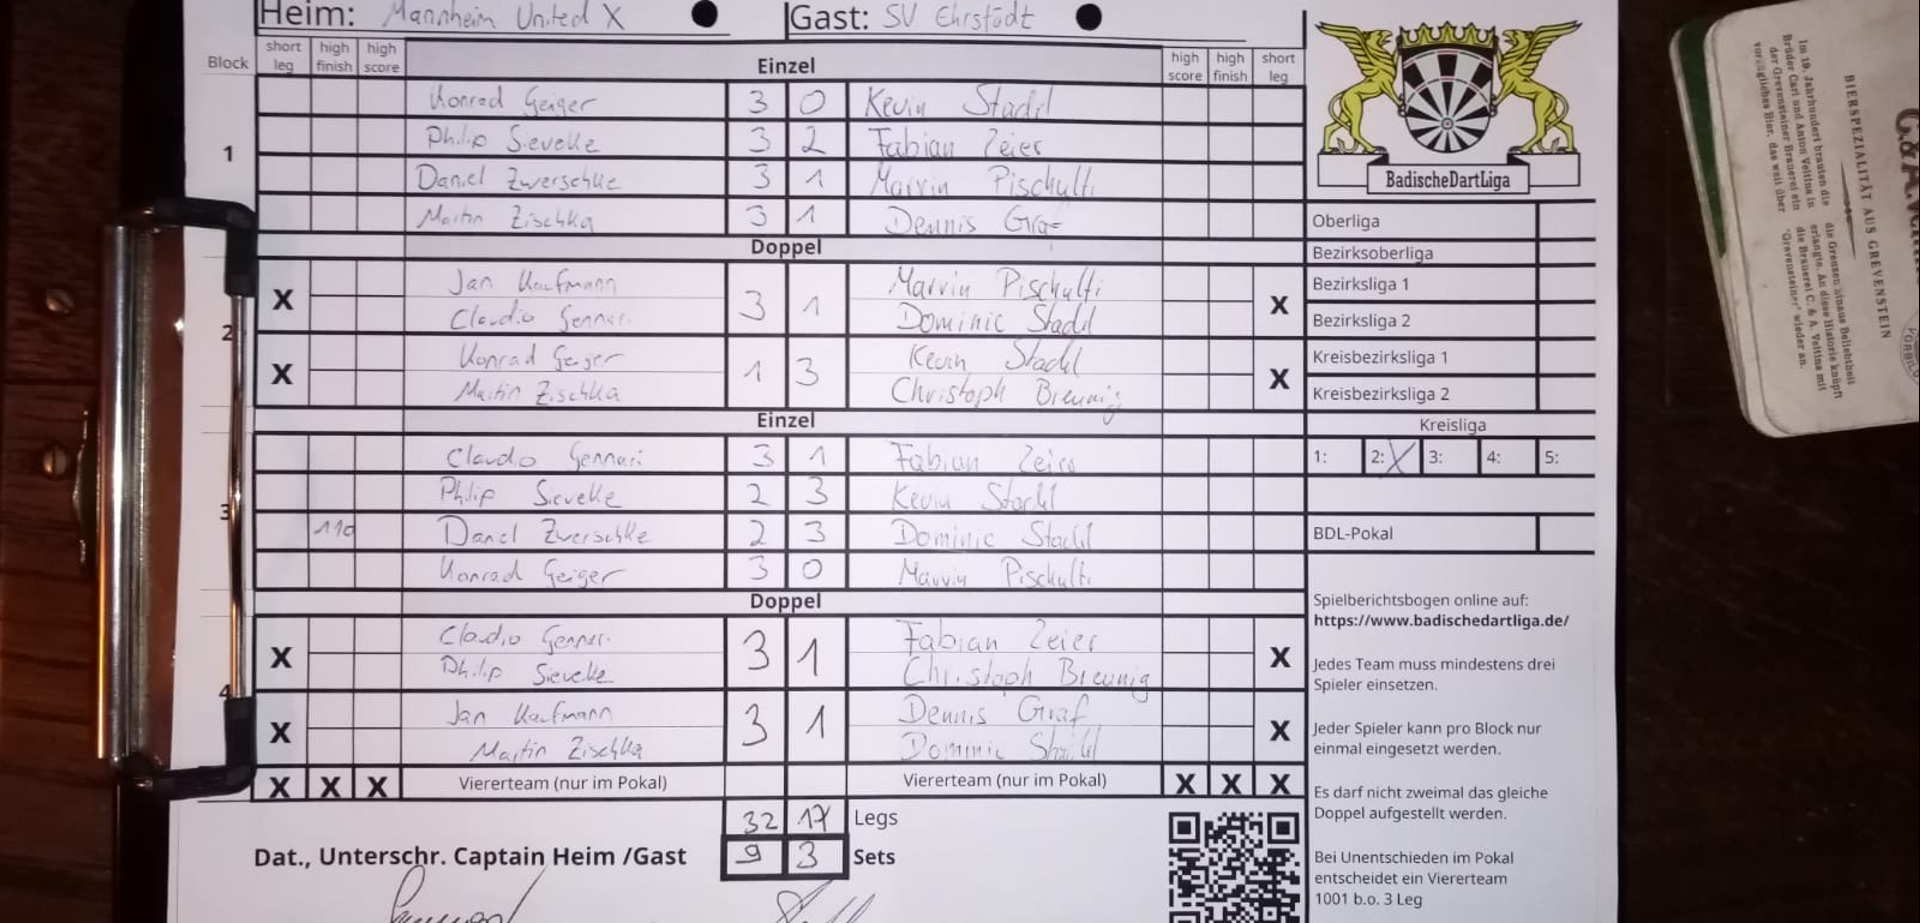 Heim: Mannheim United X Gast: SV Ehrstädt
Block short leg high finish high score Einzel high score high finish short leg
1
Konrad Geiger 3 0 Kevin Stadtl
Philip Sieveke 3 2 Fabian Zeier
Daniel Zwerschke 3 1 Marvin Pischulti
Martin Zischka 3 1 Dennis Graf
Doppel
2
X Jan Kaufmann 3 1 Marvin Pischulti X
Claudio Gennari Dominic Stadtl
X Konrad Geiger 1 3 Kevin Stadtl X
Martin Zischka Christoph Breunig
Einzel
3
Claudio Gennari 3 1 Fabian Zeier
Philip Sieveke 2 3 Kevin Stadtl
110 Daniel Zwerschke 2 3 Dominic Stadtl
Konrad Geiger 3 0 Marvin Pischulti
Doppel
4
X Claudio Gennari 3 1 Fabian Zeier X
Philip Sieveke Christoph Breunig
X Jan Kaufmann 3 1 Dennis Graf X
Martin Zischka Dominic Stadtl
X X X Viererteam (nur im Pokal) Viererteam (nur im Pokal) X X X
32 17 Legs
Dat., Unterschr. Captain Heim /Gast 9 3 Sets
BadischeDartLiga
Oberliga
Bezirksoberliga
Bezirksliga 1
Bezirksliga 2
Kreisbezirksliga 1
Kreisbezirksliga 2
Kreisliga
1: 2: X 3: 4: 5:
BDL-Pokal
Spielberichtsbogen online auf:
https://www.badischedartliga.de/
Jedes Team muss mindestens drei
Spieler einsetzen.
Jeder Spieler kann pro Block nur
einmal eingesetzt werden.
Es darf nicht zweimal das gleiche
Doppel aufgestellt werden.
Bei Unentschieden im Pokal
entscheidet ein Viererteam
1001 b.o. 3 Leg
BIERSPEZIALITÄT AUS GREVENSTEIN
Im 19. Jahrhundert brauten die
Brüder Carl und Anton Veltins in
der Grevensteiner Brauerei ein
vorzügliches Bier, das weit über
die Grenzen hinaus Beliebtheit
erlangte. An diese Historie knüpft
die Brauerei C. & A. Veltins mit
"Grevensteiner" wieder an.